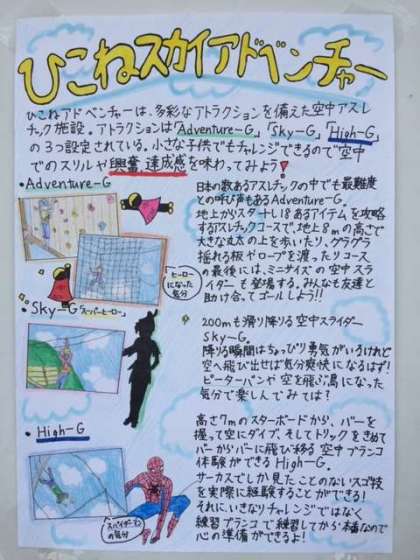 ひこねスカイアドベンチャー
ひこねアドベンチャーは、多彩なアトラクションを備えた空中アスレ
チック施設。アトラクションは「Adventure-G」「Sky-G」「High-G」
の3つ設定されている。小さな子供でもチャレンジできるので"空中
でのスリルや興奮、達成感を味わってみよう!
・Adventure-G
日本の数あるアスレチックの中でも最難度
との呼び声もあるAdventure-G。
地上からスタートし18あるアイテムを攻略
するアスレチックコースで、地上8mの高さで
大きな丸太の上を歩いたり、グラグラ
揺れる板やロープを渡ったりコース
の最後には、ミニサイズの空中スラ
イダーも登場する。みんなも友達と
助け合ってゴールしよう!!
ヒーロー
になった
気分
・Sky-G「スーパーヒーロー」
200mも滑り降りる空中スライダー
Sky-G。
降りる瞬間はちょっぴり勇気がいるけれど
空へ飛び出せば気分爽快になるはず!
ピーターパンや空を飛ぶ鳥になった
気分で楽しんでみては?
・High-G
高さ7mのスターボードから、バーを
握って空にダイブ、そしてトリックをきめて
バーからバーに飛び移る空中ブランコ
体験ができるHigh-G。
サーカスでしか見たことのないスゴ技
を実際に経験することができる!
それに、いきなりチャレンジではなく
練習ブランコで練習してから本番なので
心の準備ができるよ!
スパイダーマン
の気分